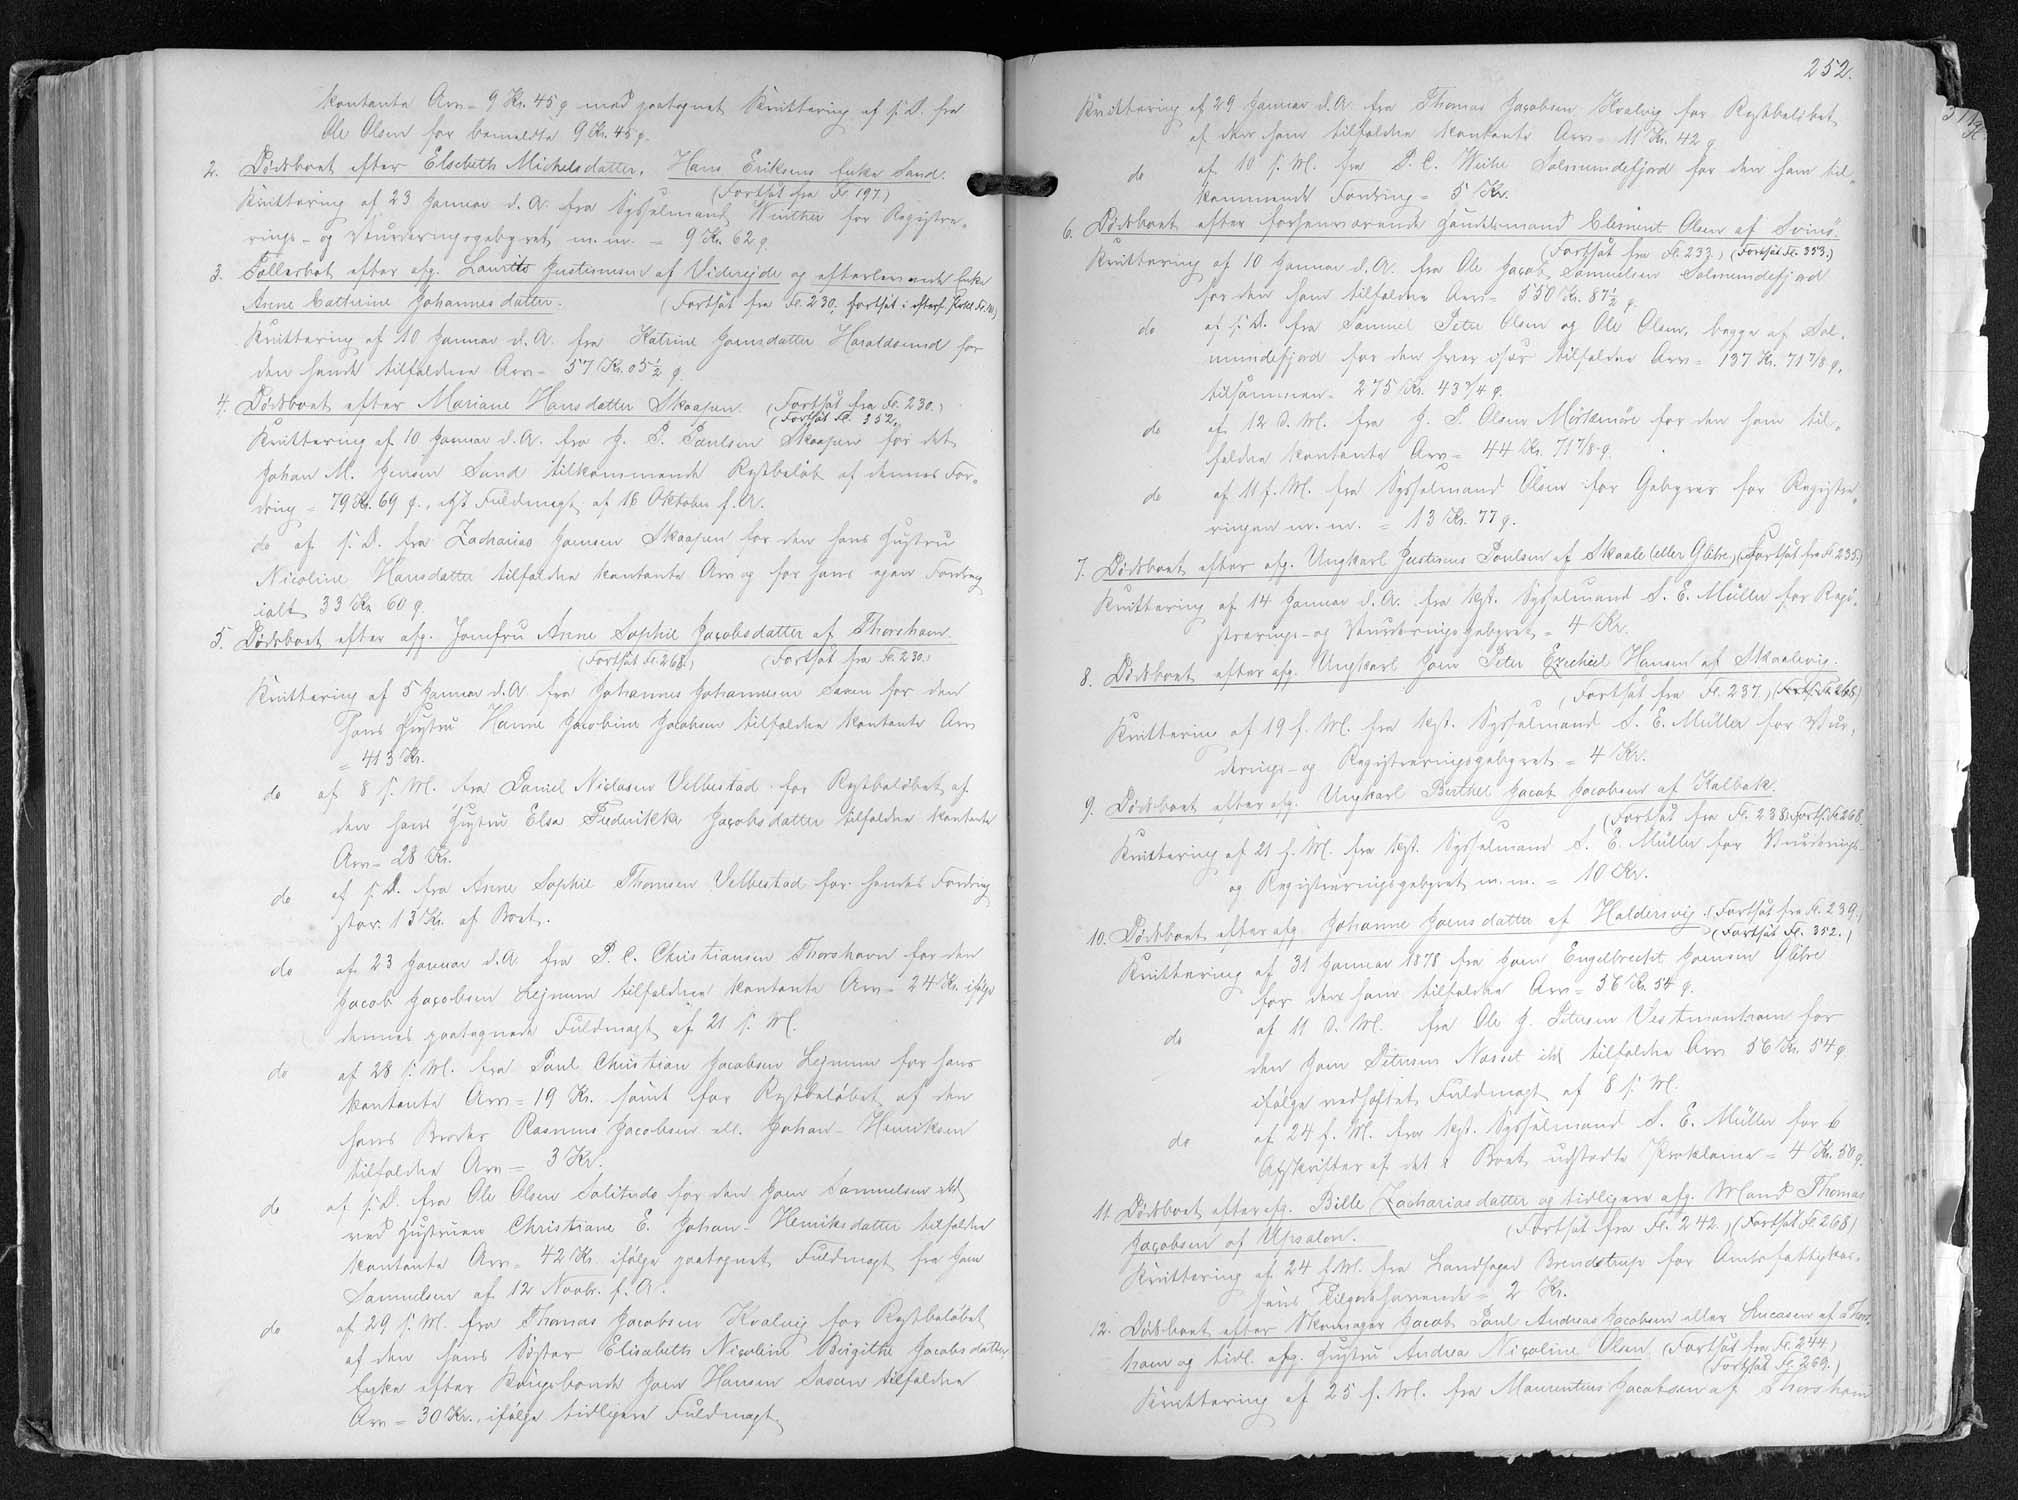 kontante Arv = 9 Kr. 45 ø med paategnet Kvittering af s. D. fra
Ole Olsen for bemeldte 9 Kr. 45 ø.
2. Dødsboet efter Elsebeth Michelsdatter, Hans Eriksens Enke Sand.
(Fortsat fra Fl. 197.)
Kvittering af 23 Januar d. A. fra Sysselmand Winther for Registre-
rings- og Vurderingsgebyret m. m. = 9 Kr. 62 ø.
3. Fællesbot efter afg. Laurits Justinussen af Videreide og efterlevende Enke
Anne Cathrine Johannesdatter. (Fortsat fra Fl. 230, fortsat i efterf. Prtkl. Fl.
Kvittering af 10 Januar d. A. fra Katrine Joensdatter Haraldssund for
den hende tilfaldne Arv = 57 Kr. 05½ ø.
4. Dødsboet efter Mariane Hansdatter Skaapen. (Fortsat fra Fl. 230.)
(Fortsat Fl. 352.)
Kvittering af 10 Januar d. A. fra J. P. Poulsen Skaapen for det
Johan M. Jensen Sand tilkommende Restbeløb af dennes For-
dring = 79 Kr. 69 ø., efst Fuldmagt af 16 Oktober f. A.
do af s. D. fra Zacharias Joensen Skaapen for den hans Hustru
Nicoline Hansdatter tilfaldne kontante Arv og for hans egen Fordring
ialt 33 Kr. 60 ø.
5. Dødsboet efter afg. Jomfru Anne Sophie Jacobsdatter af Thorshavn.
(Fortsat Fl. 268.) (Fortsat fra Fl. 230.)
Kvittering af 5 Januar d. A. fra Johannes Johannesen Saxen for den
hans Hustru Hanne Jacobine Jacobsen tilfaldne kontante Arv
= 413 Kr.
do af 8 s. M. fra Daniel Niclasen Velbestad for Restbeløbet af
den hans Hustru Elsa Frederikke Jacobsdatter tilfaldne kontante
Arv = 28 Kr.
do af s. D. fra Anne Sophie Thomsen Velbestad for hendes Fordring
stor 13 Kr. af Boet.
do af 23 Januar d. A. fra P. C. Christiansen Thorshavn for den
Jacob Jacobsen Lejnum tilfaldne kontante Arv = 24 Kr. ifølge
dennes paategnede Fuldmagt af 21 s. M.
do af 28 s. M. fra Poul Christian Jacobsen Lejnum for hans
kontante Arv = 19 Kr. samt for Restbeløbet af den
hans Broder Rasmus Jacobsen ell. Johan-Henriksen
tilfaldne Arv = 3 Kr.
do af s. D. fra Ole Olsen Solitude for den Joen Samuelsen
ved Hustruen Christiane E. Johan-Henriksdatter tilfaldne
kontante Arv = 42 Kr. ifølge paategnet Fuldmagt fra Joen
Samuelsen af 12 Novbr. f. A.
do af 29 s. M. fra Thomas Jacobsen Kvalvig for Restbeløbet
af den hans Søster Elisabeth Nicoline Birgithe Jacobsdatter,
Enke efter Kongsbonde Joen Hansen Saxen tilfaldne
Arv = 30 Kr., ifølge tidligere Fuldmagt
252.
Kvittering af 29 Januar d. A. fra Thomas Jacobsen Kvalvig for Restbeløbet
af den ham tilfaldne kontante Arv = 11 Kr. 42 ø
do af 10 s. M. fra P. C. Weihe Solmundefjord for den ham til-
kommende Fordring = 5 Kr.
6. Dødsboet efter forhenværende Handelsmand Clement Olsen af Svinø.
(Fortsat fra Fl. 233.) (Fortsat Fl. 353.)
Kvittering af 10 Januar d. A. fra Ole Jacob Samuelsen Solmundefjord
for den ham tilfaldne Arv = 550 Kr. 87½ ø.
do af s. D. fra Samuel Peter Olsen og Ole Olsen, begge af Sol-
mundefjord for den hver især tilfaldne Arv = 137 Kr. 71 7/8 ø,
tilsammen = 275 Kr. 43 3/4 ø.
do af 12 d. M. fra J. P. Olsen Mørkenøre for den ham til-
faldne kontante Arv = 44 Kr. 71 7/8 ø.
do af 11 f. M. fra Sysselmand Olsen for Gebyrer for Registre-
ringen m. m. = 13 Kr. 77 ø.
7. Dødsboet efter afg. Ungkarl Justinus Poulsen af Skaale (eller Glibre) (Fortsat fra Fl. 235.)
Kvittering af 14 Januar d. A. fra kst. Sysselmand S. E. Müller for Regi-
strerings- og Vurderingsgebyret = 4 Kr.
8. Dødsboet efter afg. Ungkarl Joen Peter Ezechiel Hansen af Skaalevig.
(Fortsat fra Fl. 237.) (Forts. Fl. 268)
Kvittering af 19 f. M. fra kst. Sysselmand S. E. Müller for Vur-
derings- og Registreringsgebyret = 4 Kr.
9. Dødsboet efter afg. Ungkarl Berthel Jacob Jacobsen af Kalbak.
(Fortsat fra Fl. 238) Forts. Fl. 268.
Kvittering af 21 f. M. fra kst. Sysselmand S. E. Müller for Vurderings-
og Registreringsgebyret m. m. = 10 Kr.
10. Dødsboet efter afg. Johanne Joensdatter af Haldersvig. (Fortsat fra Fl. 239.)
(Fortsat Fl. 352.)
Kvittering af 31 Januar 1878 fra Joen Engelbrecht Joensen Glibre
for den ham tilfaldne Arv = 56 Kr. 54 ø.
do af 11 d. M. fra Ole J. Petersen Vestmanhavn for
den Joen Petersen Næsset tilfaldne Arv 56 Kr. 54 ø
ifølge vedhæftet Fuldmagt af 8 s. M.
do af 24 f. M. fra kst. Sysselmand S. E. Müller for 6
Afskrifter af det i Boet udstedte Proklama = 4 Kr. 50 ø.
11. Dødsboet efter afg. Bille Zachariasdatter og tidligere afg. Mand Thomas
Jacobsen af Upsalon. (Fortsat fra Fl. 242.) (Fortsat Fl. 268)
Kvittering af 24 f. M. fra Landfoged Brendstrup for Amtsfattigkas-
sens Tilgodehavende = 2 Kr.
12. Dødsboet efter Skomager Jacob Poul Andreas Jacobsen eller Lucasen af Thors-
havn og tidl. afg. Hustru Andrea Nicoline Olsen (Fortsat fra Fl. 244)
(Fortsat Fl. 269.)
Kvittering af 25 f. M. fra Maurentius Jacobsen af Thorshavn